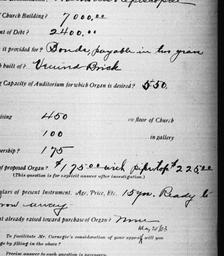 Church Building? 7000.00
nt of Debt? 2400.00
it provided for? Bonds, payable in ten years
built of? Veneered Brick
Capacity of Auditorium for which Organ is desired? 550.
450 on floor of Church
100 in gallery
bership? 175
f proposed Organ? $175.00 with pipetop $225.00
(This question is for explicit answer after investigation.)
lars of present Instrument. Age, Price, Etc. 15 yrs. Ready to
away
nt already raised toward purchase of Organ? None
To facilitate Mr. Carnegie's consideration of your appeal will you
ge by filling in the above?
Precise answer to each question is necessary.